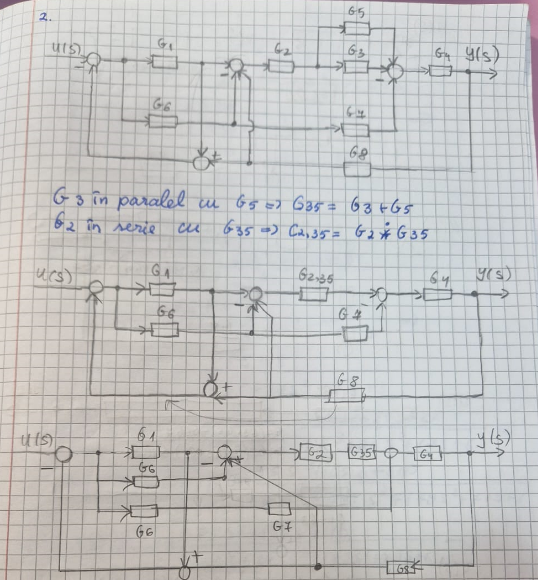 2.
G5
U(S) G1 G2 G3 G4 y(s)
-
-
-
G6 G7
+
G8
G3 în paralel cu G5 => G35 = G3 + G5
G2 în serie cu G35 => G2,35 = G2 * G35
U(S) G1 G2,35 G4 y(s)
-
-
G6 G7
+
G8
U(S) G1 - + G2 G35 G4 y(s)
-
G6
G6 G7
+
G8